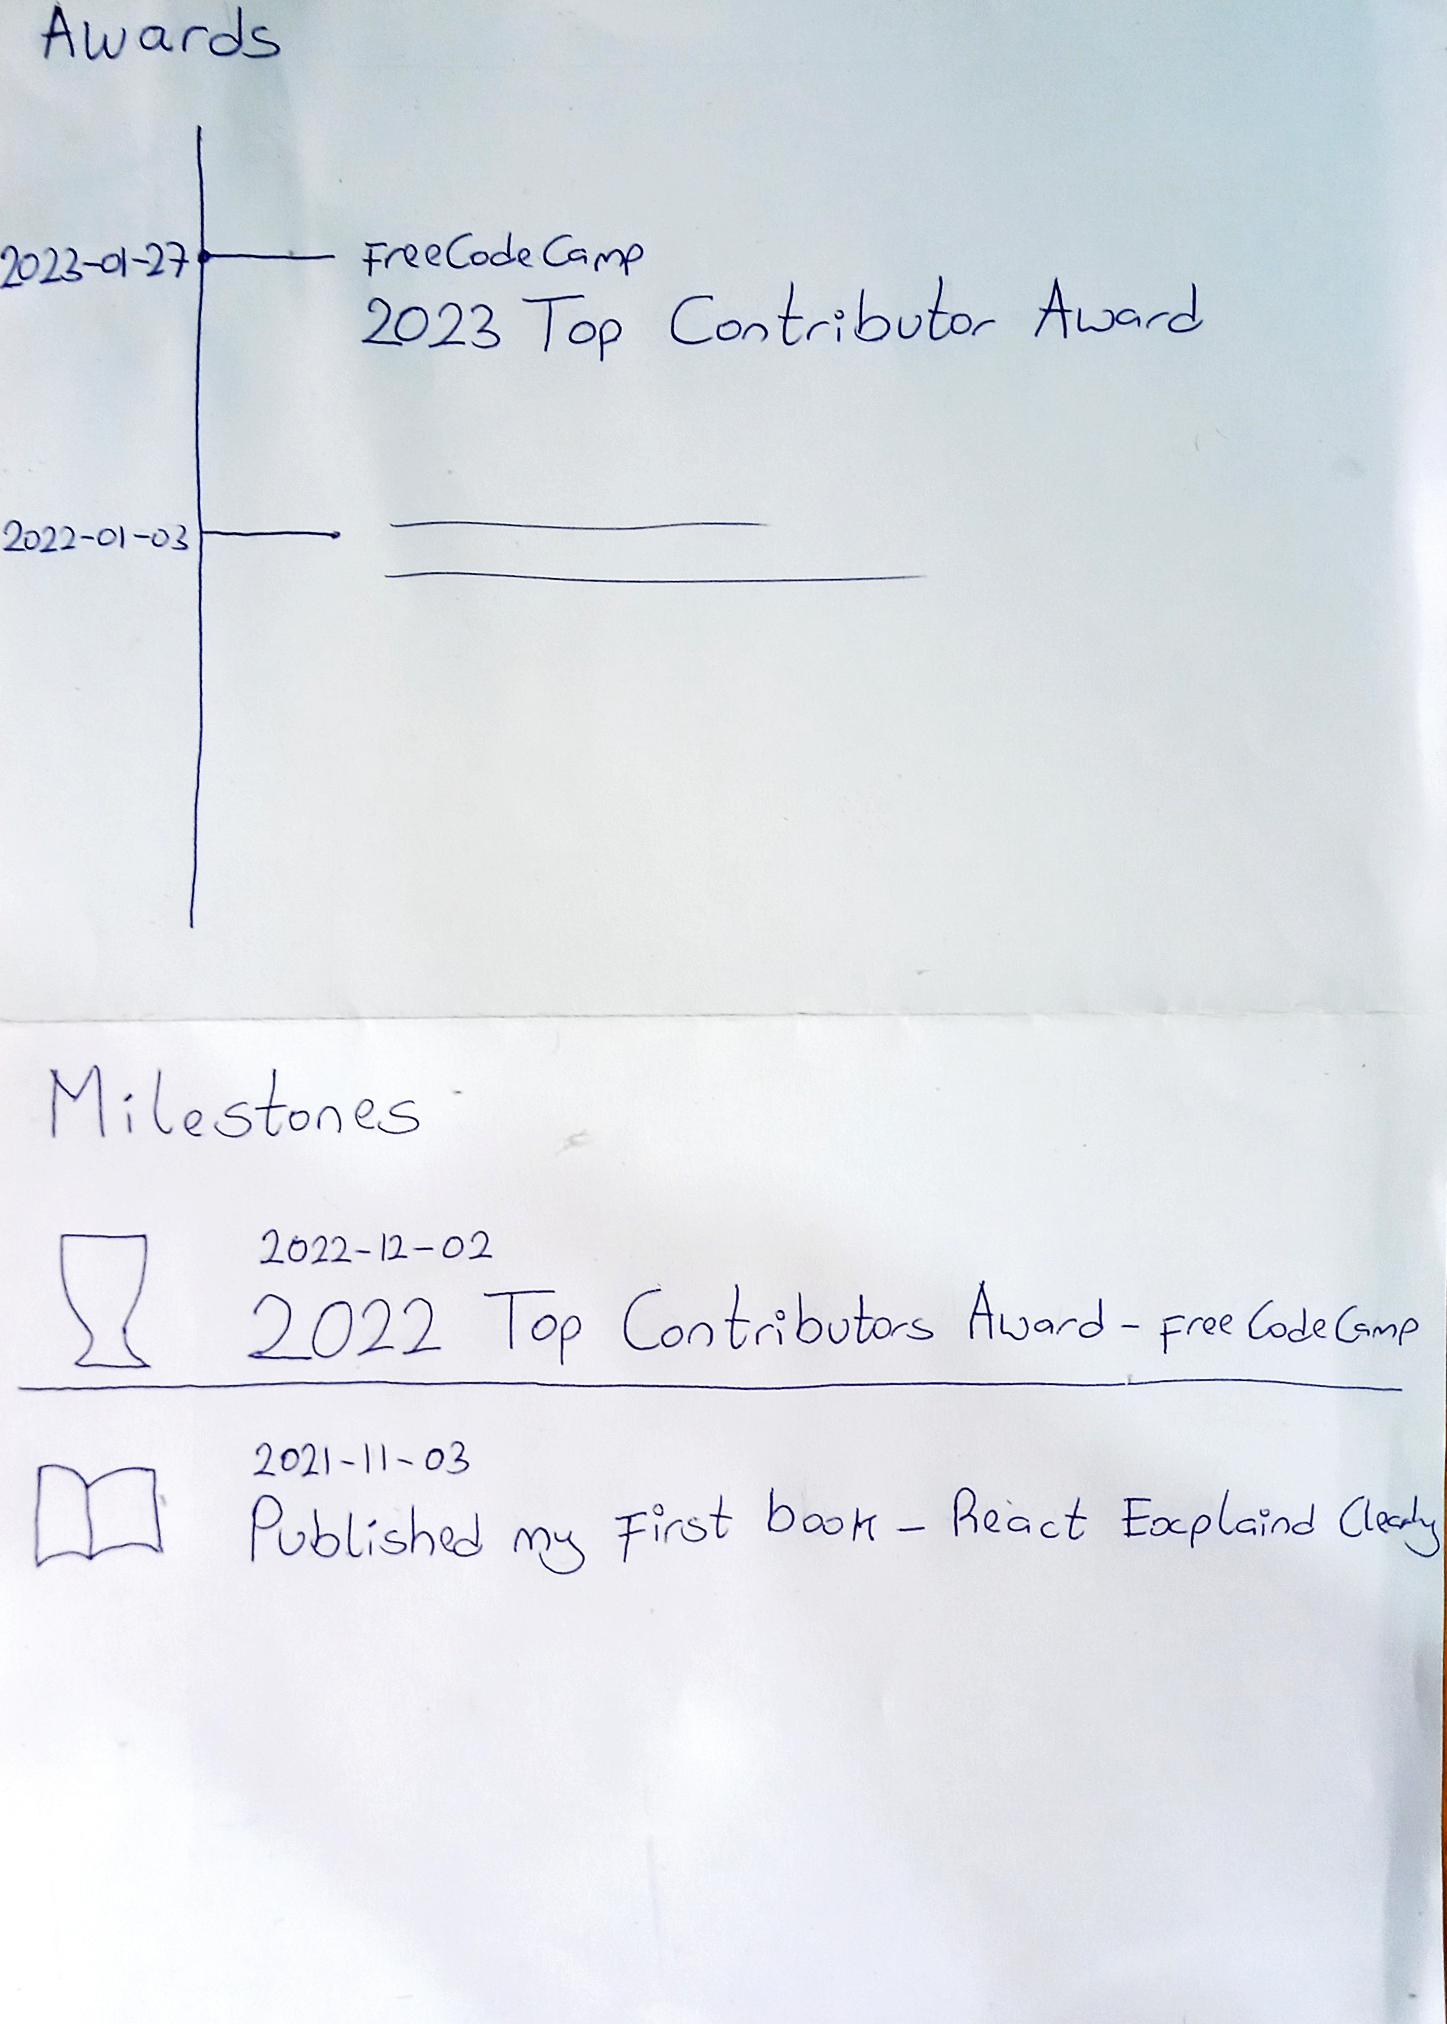 Awards
2023-01-27
FreeCodeCamp
2023 Top Contributor Award
2022-01-03
Milestones
2022-12-02
2022 Top Contributors Award - FreeCodeCamp
2021-11-03
Published my First book - React Explaind Clearly